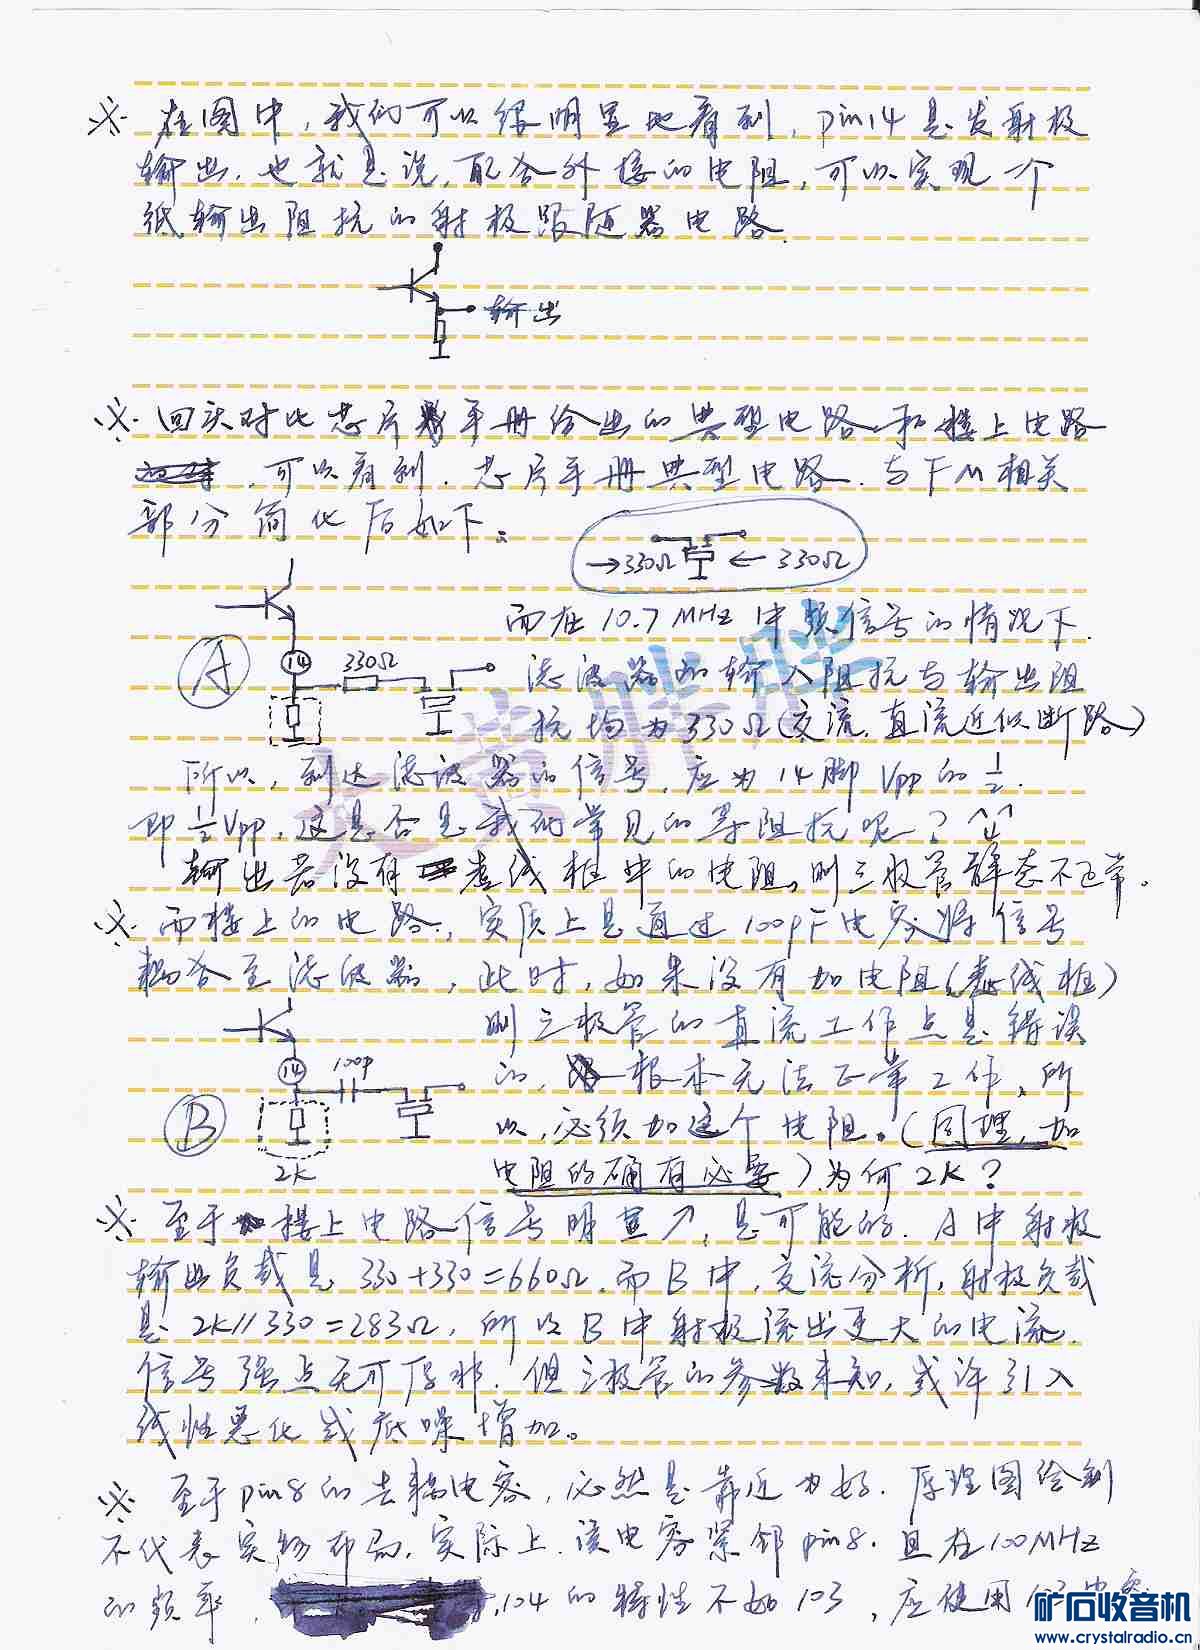 ※ 在图中,我们可以很明显地看到,pin14是发射极
输出,也就是说,配合外接的电阻,可以实现一个
低输出阻抗的射极跟随器电路.
输出
※ 回头对比芯片手册给出的典型电路和楼上电路
,可以看到,芯片手册典型电路,与FM相关
部分简化后如下。
→330Ω ← 330Ω
而在10.7MHz中频信号的情况下.
A
14 330Ω
滤波器的输入阻抗与输出阻
抗均为330Ω(交流,直流近似断路)
所以,到达滤波器的信号,应为14脚Vpp的1/2.
即1/2Vpp,这是否是我们常见的等阻抗呢?
输出若没有虚线框中的电阻,则三极管静态不正常.
※ 而楼上的电路,实质上是通过100pF电容将信号
耦合至滤波器,此时,如果没有加电阻(虚线框)
则三极管的直流工作点是错误
14 100p
的,根本无法正常工作,所
B
以,必须加这个电阻。(同理,加
2K
电阻的确有必要).为何2K?
※ 至于楼上电路信号明显↗,是可能的.A中射极
输出负载是330+330=660Ω.而B中,交流分析,射极负载
是2K//330=283Ω,所以B中射极流出更大的电流.
信号强点无可厚非.但三极管的参数未知,或许引入
线性恶化或底噪增加。
※ 至于pin8的去耦电容,必然是靠近为好.原理图绘制
不代表实物布局,实际上,该电容紧邻pin8.且在100MHz
的频率,104的特性不如103,应使用
大黄胖胖
矿石收音机
www.crystalradio.cn